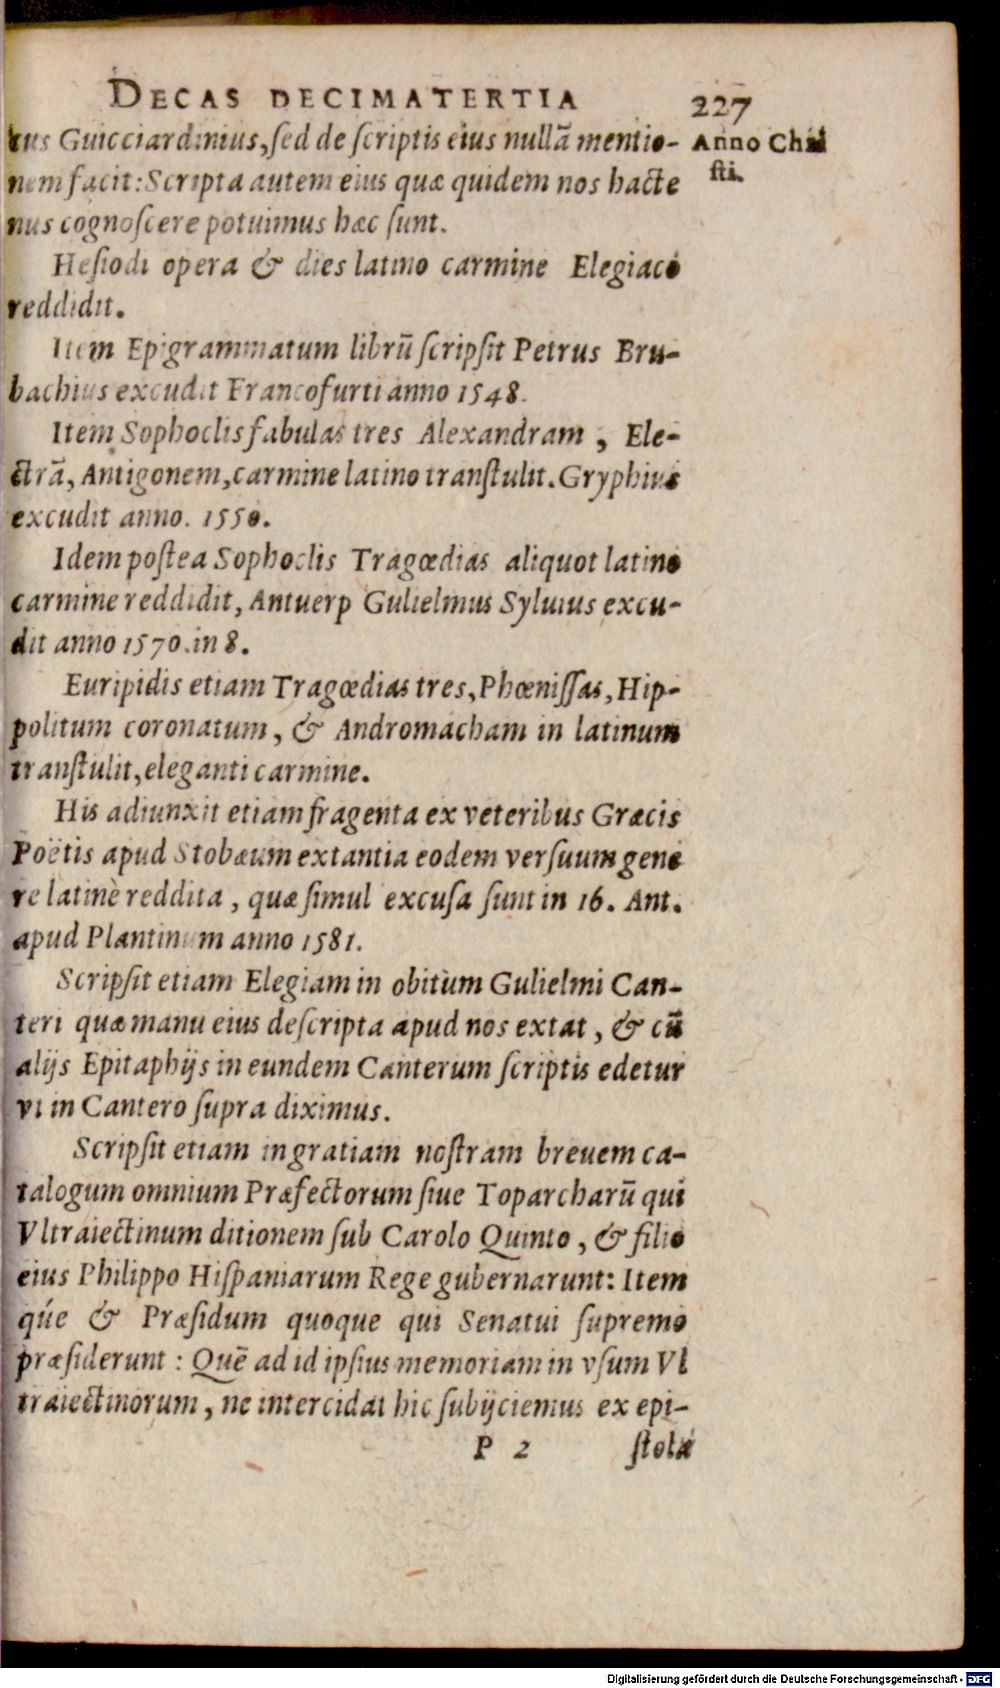 DECAS DECIMATERTIA 227
tus Guicciardinius, ſed de ſcriptis eius nullā mentio-
nem facit: Scripta autem eius quæ quidem nos hacte
nus cognoſcere potuimus hæc ſunt.
Anno Chri
ſti.
Heſiodi opera & dies latino carmine Elegiaco
reddidit.
Item Epigrammatum librū ſcripſit Petrus Bru-
bachius excudit Francofurti anno 1548.
Item Sophoclis fabulas tres Alexandram, Ele-
ctrā, Antigonem, carmine latino tranſtulit. Gryphius
excudit anno. 1550.
Idem poſtea Sophoclis Tragœdias aliquot latino
carmine reddidit, Antuerp Gulielmus Syluius excu-
dit anno 1570. in 8.
Euripidis etiam Tragœdias tres, Phœniſſas, Hip-
politum coronatum, & Andromacham in latinum
tranſtulit, eleganti carmine.
His adiunxit etiam fragenta ex veteribus Græcis
Poëtis apud Stobæum extantia eodem verſuum gene
re latinè reddita, quæ ſimul excuſa ſunt in 16. Ant.
apud Plantinum anno 1581.
Scripſit etiam Elegiam in obitùm Gulielmi Can-
teri quæ manu eius deſcripta apud nos extat, & cū
alijs Epitaphijs in eundem Canterum ſcriptis edetur
vt in Cantero ſupra diximus.
Scripſit etiam in gratiam noſtram breuem ca-
talogum omnium Præfectorum ſiue Toparcharū qui
Vltraiectinum ditionem ſub Carolo Quinto, & filio
eius Philippo Hiſpaniarum Rege gubernarunt: Item
qúe & Præſidum quoque qui Senatui ſupremo
præſiderunt: Quē ad id ipſius memoriam in vſum Vl
traiectinorum, ne intercidat hic ſubijciemus ex epi-
P 2 ſtola
Digitalisierung gefördert durch die Deutsche Forschungsgemeinschaft - DFG